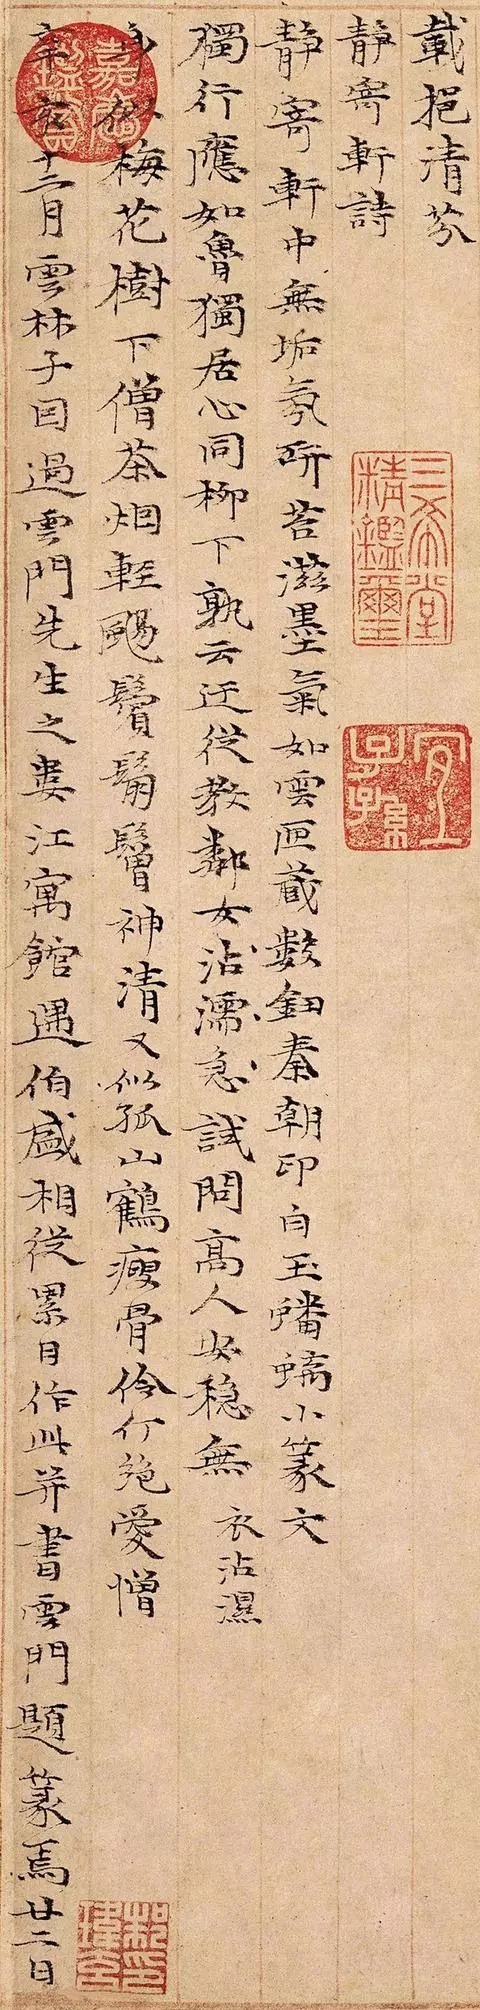 載挹清芬
靜寄軒詩
靜寄軒中無垢氛研苔滋墨氣如雲匣藏數鈕秦朝印白玉蟠螭小篆文
獨行應如魯獨居心同柳下孰云迂從教鄰女沾濡急試問高人安穩無衣沾濕
梅花樹下僧茶烟輕颺鬢鬅鬙神清又似孤山鶴瘦骨伶仃絕愛憎
辛亥十二月雲林子因過雲門先生之婁江寓館遇伯盛相從累日作此并書雲門題篆焉廿二日
三希堂精鑑璽
宜子孫
嘉慶鑑賞